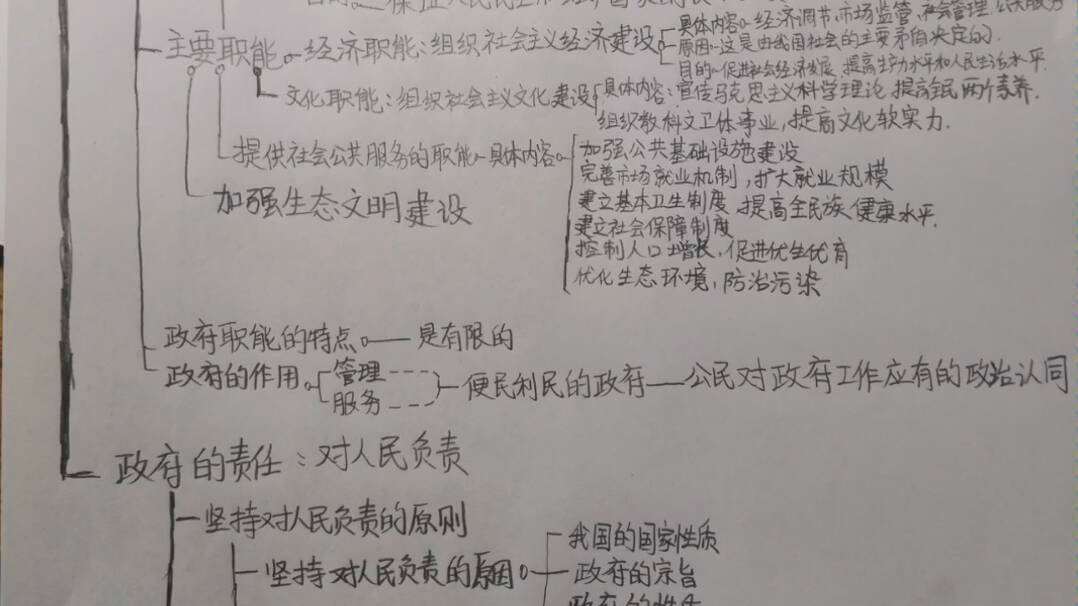 保证人民民主
具体内容 经济调节、市场监管、社会管理、公共服务
主要职能 经济职能：组织社会主义经济建设 原因 这是由我国社会的主要矛盾决定的.
目的 促进社会经济发展 提高生产力水平和人民生活水平.
文化职能：组织社会主义文化建设 具体内容：宣传马克思主义科学理论 提高全民两个素养.
组织教科文卫体事业，提高文化软实力.
提供社会公共服务的职能 具体内容 加强公共基础设施建设
完善市场就业机制，扩大就业规模
加强生态文明建设 建立基本卫生制度 提高全民族健康水平.
建立社会保障制度
控制人口增长，促进优生优育
优化生态环境，防治污染
政府职能的特点 是有限的
政府的作用 管理 便民利民的政府 公民对政府工作应有的政治认同
服务
政府的责任：对人民负责
坚持对人民负责的原则
我国的国家性质
坚持对人民负责的原因 政府的宗旨
政府的性质